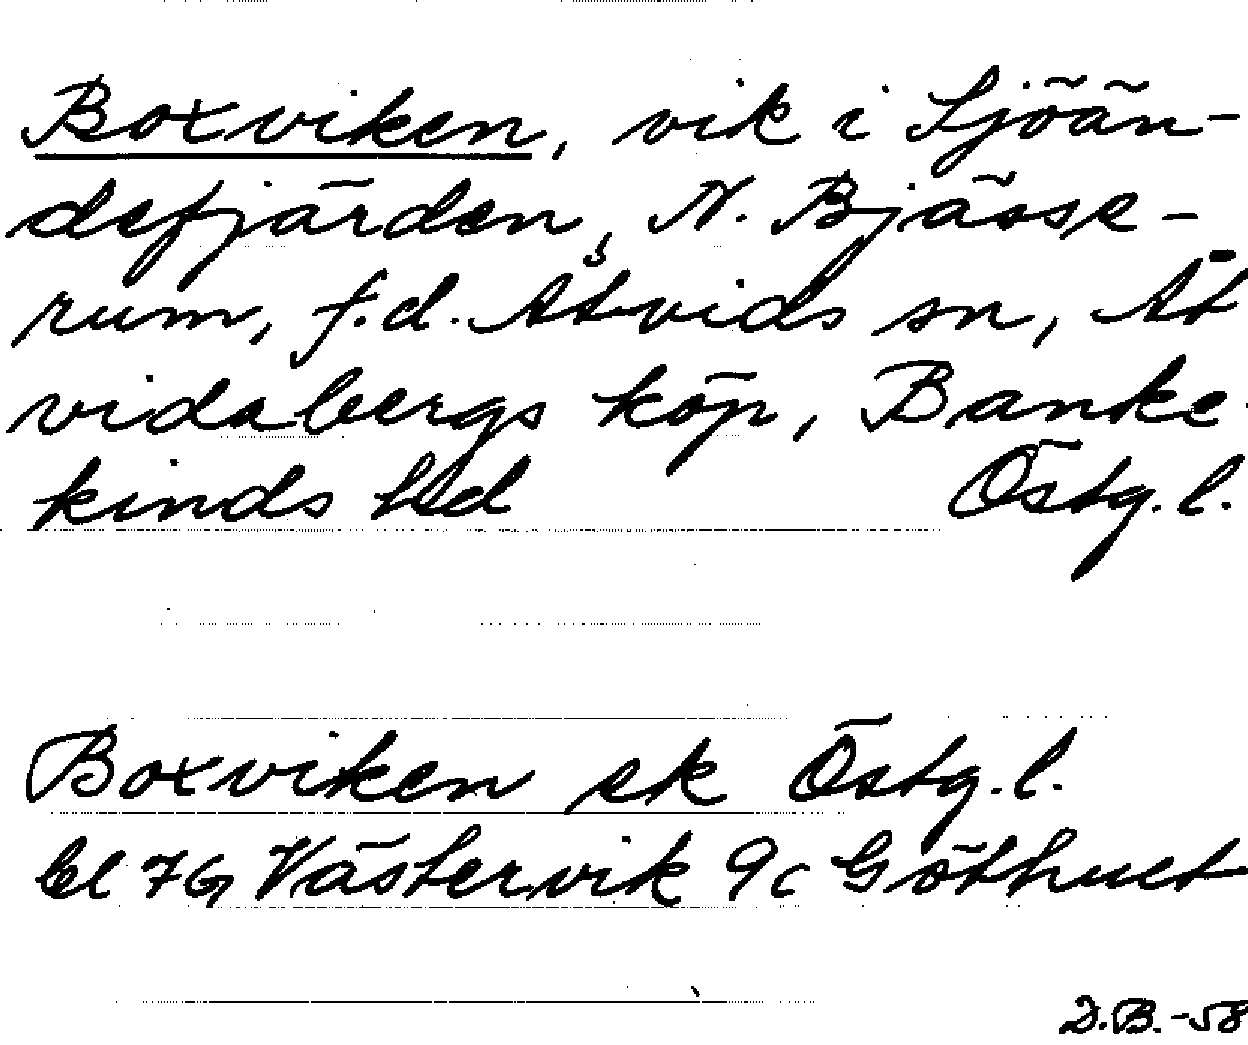 Boxviken, vik i Sjöän-
defjärden, N. Bjässe-
rum, f.d. Åtvids sn, Åt
vidabergs köp, Banke
kinds hd Östg.l.
Boxviken ek Östg.l.
bl 7G Västervik 9c Göthult
D.B.-58